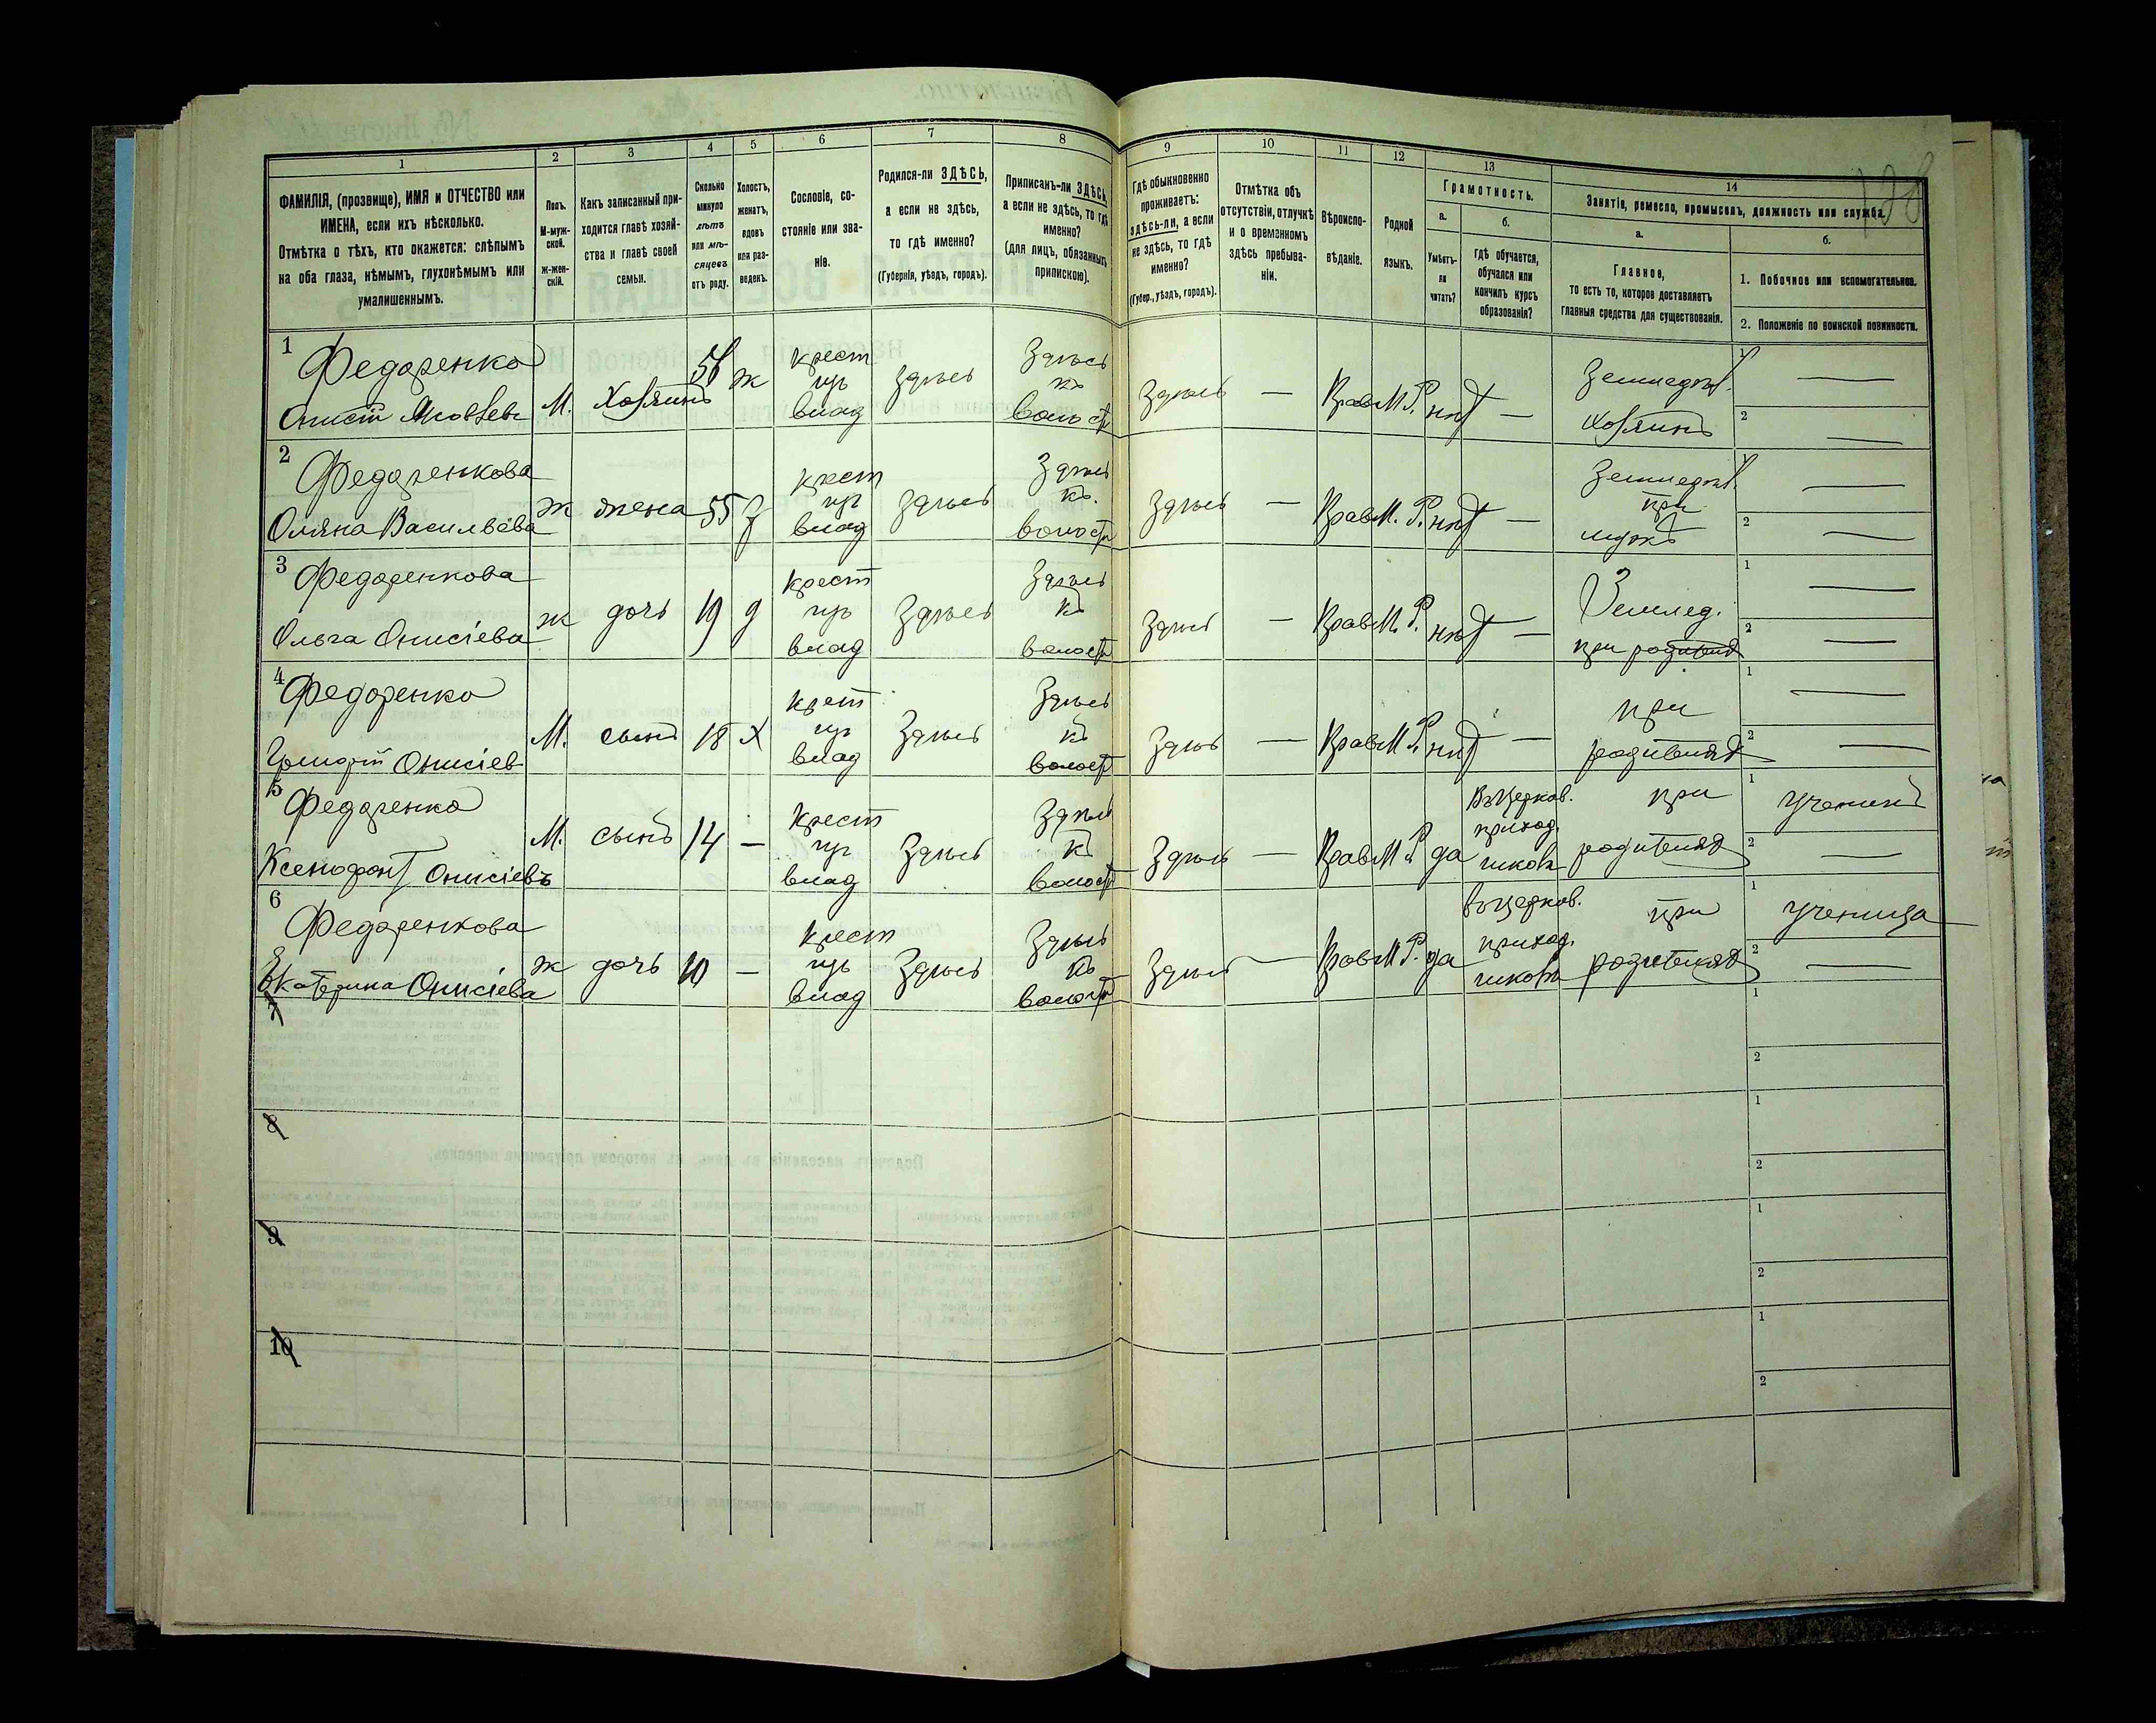 1
2
3
4
5
6
7
8
9
10
11
12
13
14
ФАМИЛІЯ, (прозвище), ИМЯ и ОТЧЕСТВО или
ИМЕНА, если ихъ нѣсколько.
Отмѣтка о тѣхъ, кто окажется: слѣпымъ
на оба глаза, нѣмымъ, глухонѣмымъ или
умалишеннымъ.
Полъ.
М-муж-
ской.
Ж-жен-
скій.
Какъ записанный при-
ходится главѣ хозяй-
ства и главѣ своей
семьи.
Сколько
минуло
лѣтъ
или мѣ-
сяцевъ
отъ роду.
Холостъ,
женатъ,
вдовъ
или раз-
веденъ.
Сословіе, со-
стояніе или зва-
ніе.
Родился-ли ЗДѢСЬ,
а если не здѣсь,
то гдѣ именно?
(Губернія, уѣздъ, городъ).
Приписанъ-ли ЗДѢСЬ,
а если не здѣсь, то гдѣ
именно?
(для лицъ, обязанныхъ
припискою).
Гдѣ обыкновенно
проживаетъ:
здѣсь-ли, а если
не здѣсь, то гдѣ
именно?
(Губер., уѣздъ, городъ).
Отмѣтка объ
отсутствіи, отлучкѣ
и о временномъ
здѣсь пребыва-
ніи.
Вѣроиспо-
вѣданіе.
Родной
языкъ.
Грамотность.
а.
Умѣетъ-
ли
читать?
б.
Гдѣ обучается,
обучался или
кончилъ курсъ
образованія?
Занятіе, ремесло, промыселъ, должность или служба.
а.
Главное,
то есть то, которое доставляетъ
главныя средства для существованія.
б.
1. Побочное или вспомогательное.
2. Положеніе по воинской повинности.
128
1 Федоренко
Онисій Яковлев М. Хозяинъ 56 ж
крест
пр
влад
Здѣсь
Здѣсь
къ
волост
Здѣсь — Прав М.Р. нѣт —
Земледѣл.
Хозяинъ
1 —
2 —
2 Федоренкова
Оляна Васильева ж жена 55 з
крест
пр
влад
Здѣсь
Здѣсь
къ
волост
Здѣсь — Прав М.Р. нѣт —
Земледѣл.
при
мужѣ
1 —
2 —
3 Федоренкова
Ольга Онисіева ж дочь 19 д
крест
пр
влад
Здѣсь
Здѣсь
къ
волост
Здѣсь — Прав М.Р. нѣт —
Землед.
при родителяхъ
1 —
2 —
4 Федоренко
Григорій Онисіев М. сынъ 18 Х
крест
пр
влад
Здѣсь
Здѣсь
къ
волост
Здѣсь — Прав М.Р. нѣт —
при
родителяхъ
1 —
2 —
5 Федоренко
Ксенофонт Онисіевъ М. сынъ 14 —
крест
пр
влад
Здѣсь
Здѣсь
къ
волост
Здѣсь — Прав М.Р. да
Въ Церков.
приход.
школѣ
при
родителяхъ
1 Ученикъ
2 —
6 Федоренкова
Екатерина Онисіева ж дочь 10 —
крест
пр
влад
Здѣсь
Здѣсь
къ
волост
Здѣсь — Прав М.Р. да
въ Церков.
приход.
школѣ
при
родителяхъ
1 Ученица
2 —
7
1
2
8
1
2
9
1
2
10
1
2